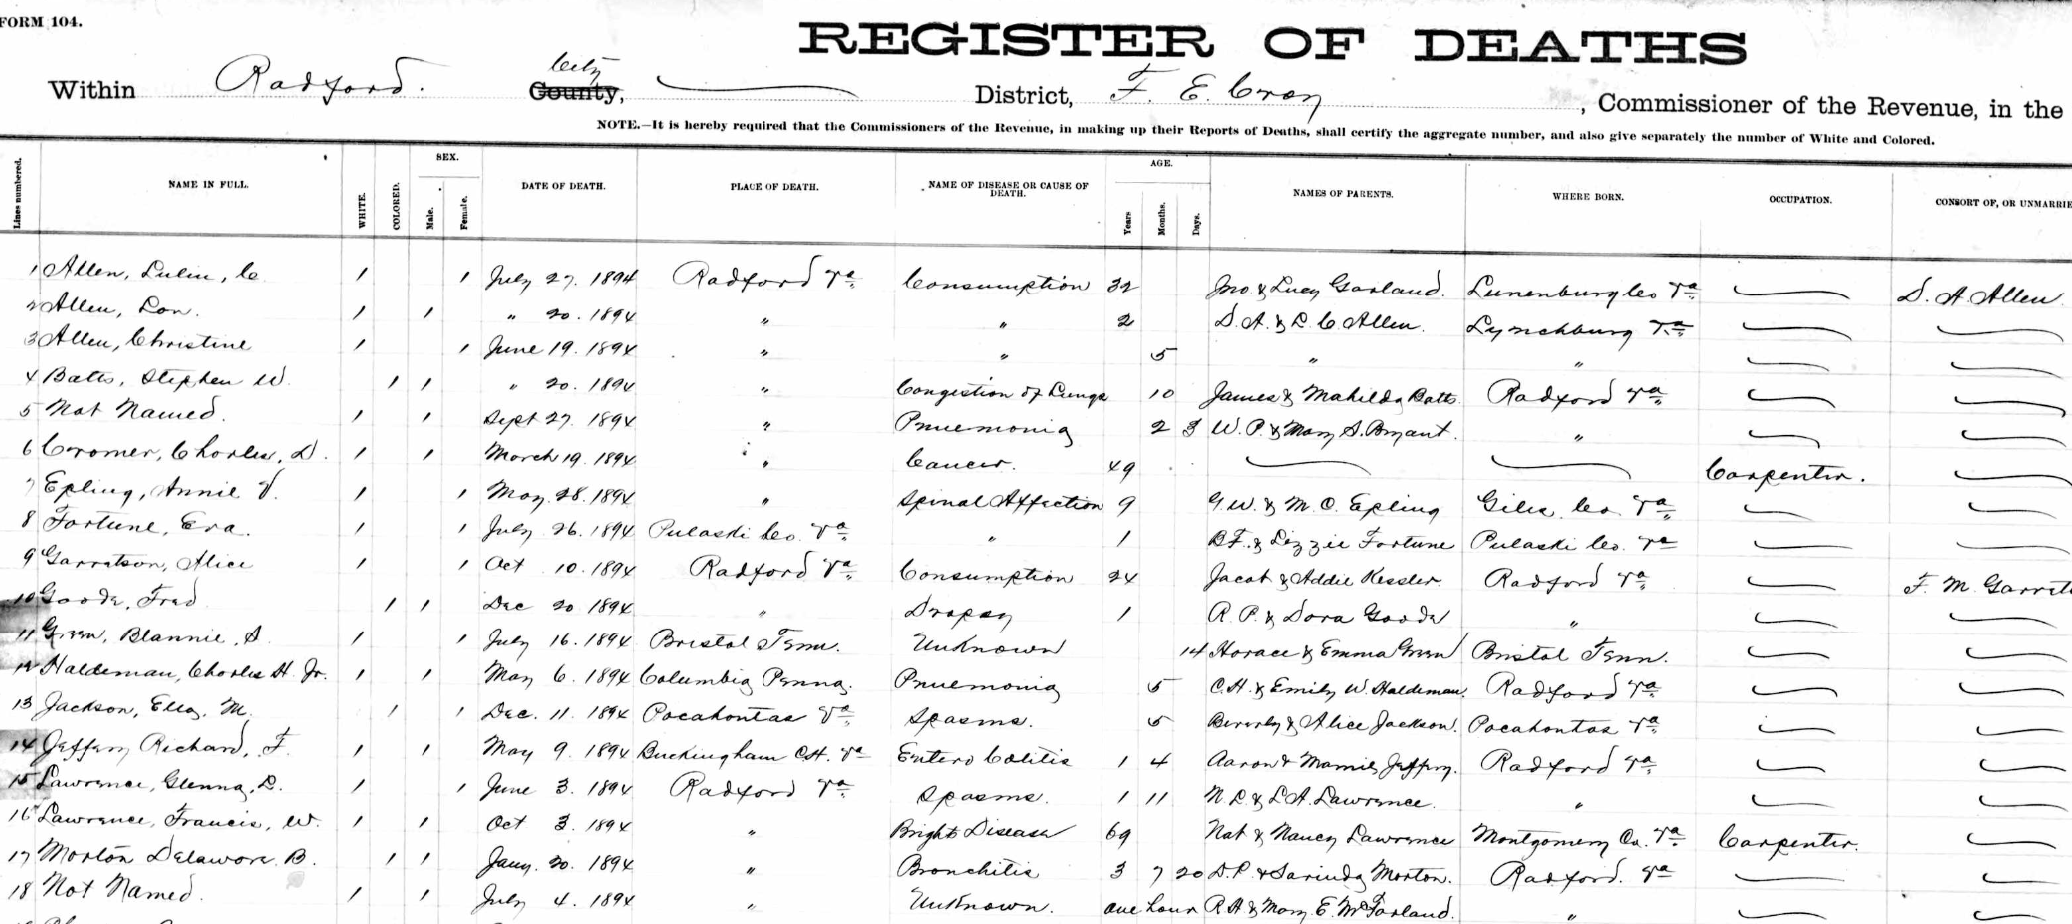 FORM 104.
REGISTER OF DEATHS
Within Radford. County, City District, F. E. Croy, Commissioner of the Revenue, in the
NOTE.—It is hereby required that the Commissioners of the Revenue, in making up their Reports of Deaths, shall certify the aggregate number, and also give separately the number of White and Colored.
Lines numbered. NAME IN FULL. WHITE. COLORED. SEX. Male. Female. DATE OF DEATH. PLACE OF DEATH. NAME OF DISEASE OR CAUSE OF DEATH. AGE. Years Months. Days. NAMES OF PARENTS. WHERE BORN. OCCUPATION. CONSORT OF, OR UNMARRIE
1 Allen, Lulin, C. 1 1 July 27. 1894 Radford Va. Consumption 32 Jno & Lucy Garland. Lunenburg Co Va. D. A. Allen
2 Allen, Lon. 1 1 " 20. 1894 " " 2 D. A. & L. C. Allen. Lynchburg Va.
3 Allen, Christine 1 1 June 19. 1894 " " 5 " "
4 Batts, Stephen W. 1 1 " 20. 1894 " Congestion of Lungs 10 James & Mahilda Batts. Radford Va.
5 Not Named. 1 1 Sept 27. 1894 " Pnuemonia 2 3 W. P. & Mary S. Bryant. "
6 Cromer, Charles, D. 1 1 March 19. 1894 " Cancer. 49 Carpenter.
7 Epling, Annie V. 1 1 May. 28. 1894 " Spinal Affection 9 G. W. & M. O. Epling Giles Co. Va.
8 Fortune, Eva. 1 1 July 26. 1894 Pulaski Co. Va. " 1 B. F. & Lizzie Fortune Pulaski Co. Va
9 Garratson, Alice 1 1 Oct 10. 1894 Radford Va. Consumption 24 Jacob & Addie Kessler. Radford Va. F. M. Garrat
10 Goode, Fred 1 1 Dec 20 1894 " Dropsy 1 R. P. & Dora Goode "
11 Green, Blannie, S. 1 1 July 16. 1894 Bristol Tenn. Unknown 14 Horace & Emma Green Bristol Tenn.
12 Haldeman, Charles H. Jr. 1 1 May 6. 1894 Columbia Penna. Pnuemonia 5 C. H. & Emily W. Haldeman. Radford Va.
13 Jackson, Ella, M. 1 1 Dec. 11. 1894 Pocahontas Va. Spasms. 5 Beverly & Alice Jackson. Pocahontas Va.
14 Jeffery Richard, F. 1 1 May 9. 1894 Buckingham C.H. Va Entero Colitis 1 4 Aaron & Mamie Jeffery. Radford Va.
15 Lawrence, Glenna, L. 1 1 June 3. 1894 Radford Va. Spasms. 1 11 N. L. & L. A. Lawrence. "
16 Lawrence, Francis, W. 1 1 Oct 3. 1894 " Brights Disease 69 Nat & Nancy Lawrence Montgomery Co. Va. Carpenter.
17 Morton Delaware B. 1 1 Jany. 20. 1894 " Bronchitis 3 7 20 D. P. & Sarinda Morton. Radford. Va
18 Not Named. 1 1 July 4. 1894 " Unknown. one hour R. H. & Mary E. McFarland. "